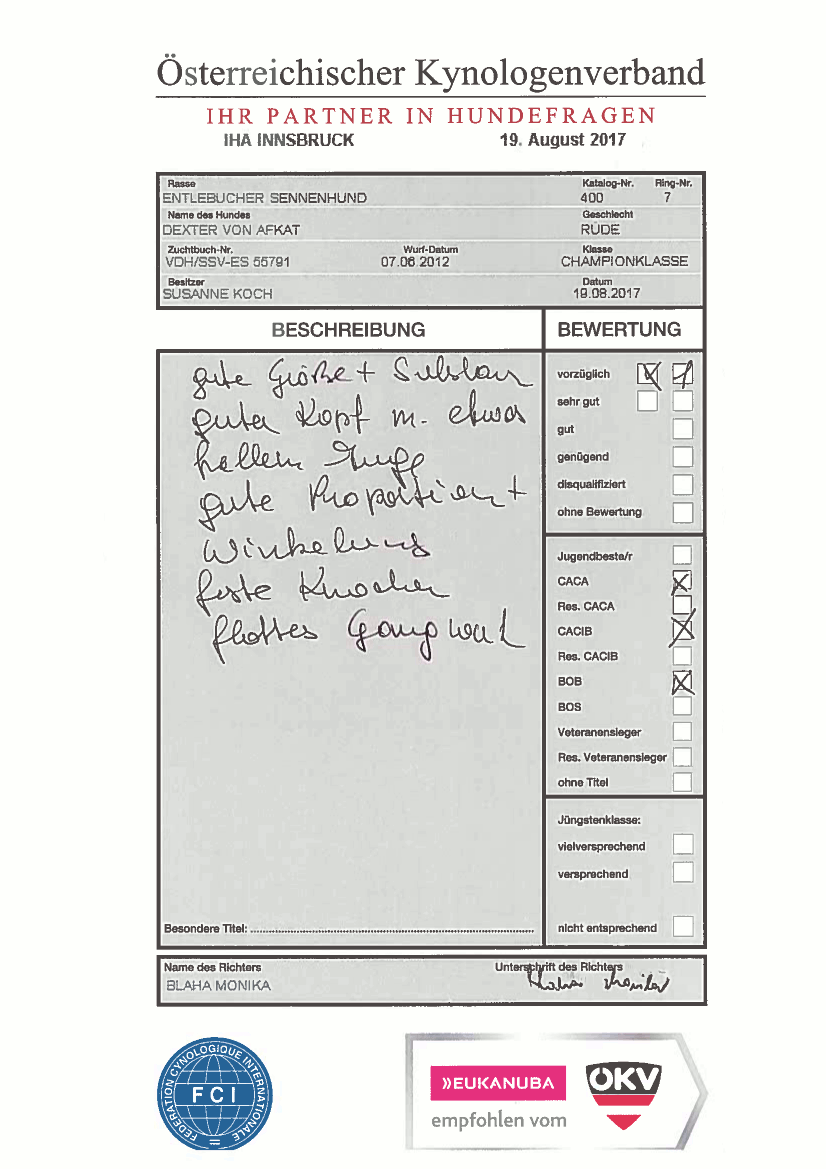 Österreichischer Kynologenverband
IHR PARTNER IN HUNDEFRAGEN
IHA INNSBRUCK 19. August 2017
Rasse Katalog-Nr. Ring-Nr.
ENTLEBUCHER SENNENHUND 400 7
Name des Hundes Geschlecht
DEXTER VON AFKAT RÜDE
Zuchtbuch-Nr. Wurf-Datum Klasse
VDH/SSV-ES 55791 07.06.2012 CHAMPIONKLASSE
Besitzer Datum
SUSANNE KOCH 19.08.2017
BESCHREIBUNG
gute Größe + Substanz
guter Kopf m. etwas
hellem
gute Proportion +
Winkelung
feste Knochen
flottes Gangwerk
Besondere Titel:
BEWERTUNG
vorzüglich 1
sehr gut
gut
genügend
disqualifiziert
ohne Bewertung
Jugendbeste/r
CACA
Res. CACA
CACIB
Res. CACIB
BOB
BOS
Veteranensieger
Res. Veteranensieger
ohne Titel
Jüngstenklasse:
vielversprechend
versprechend
nicht entsprechend
Name des Richters Unterschrift des Richters
BLAHA MONIKA Blaha Monika
FEDERATION CYNOLOGIQUE INTERNATIONALE
FCI
EUKANUBA
empfohlen vom
ÖKV